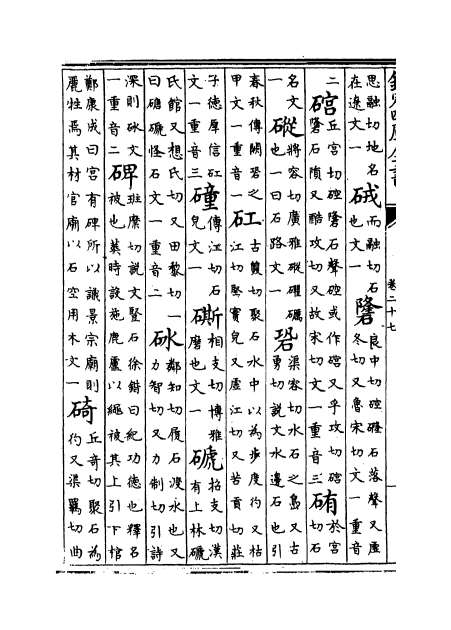 卷二十七
思融切地名在遼文一 䂆 而融切石也文一 䃧 良中切硿䃧石落聲又盧冬切又魯宋切文一重音
二 䂫 丘宮切硿䃧石聲硿或作䂫又乎攻切䂫䃧石隕又酷攻切又故宋切文一重音三 於宮切石
名文一 磫 將容切廣雅磫礭礪也一曰石路文一 䂬 渠容切水石之島又古勇切說文水邊石也引
春秋傳闕䂬之甲文一重音一 矼 古雙切聚石水中以為步度彴又枯江切堅實皃又虛江切又苦貢切莊
子德厚信矼文一重音三 䃥 傳江切石皃文一 相支切博雅磨也文一 磃 招支切漢有上林磃
氏館又想氏切又田黎切一曰磄磃怪石文一重音二 砅 鄰知切履石渡水也又力智切又力制切引詩
深則砅文一重音二 碑 班麋切說文豎石徐鍇曰紀功德也釋名被也葬時設施鹿盧以繩被其上引下棺
鄭康成曰宮有碑所以識景宗廟則麗牲焉其材宮廟以石空用木文一 碕 丘奇切聚石為彴又渠羈切曲